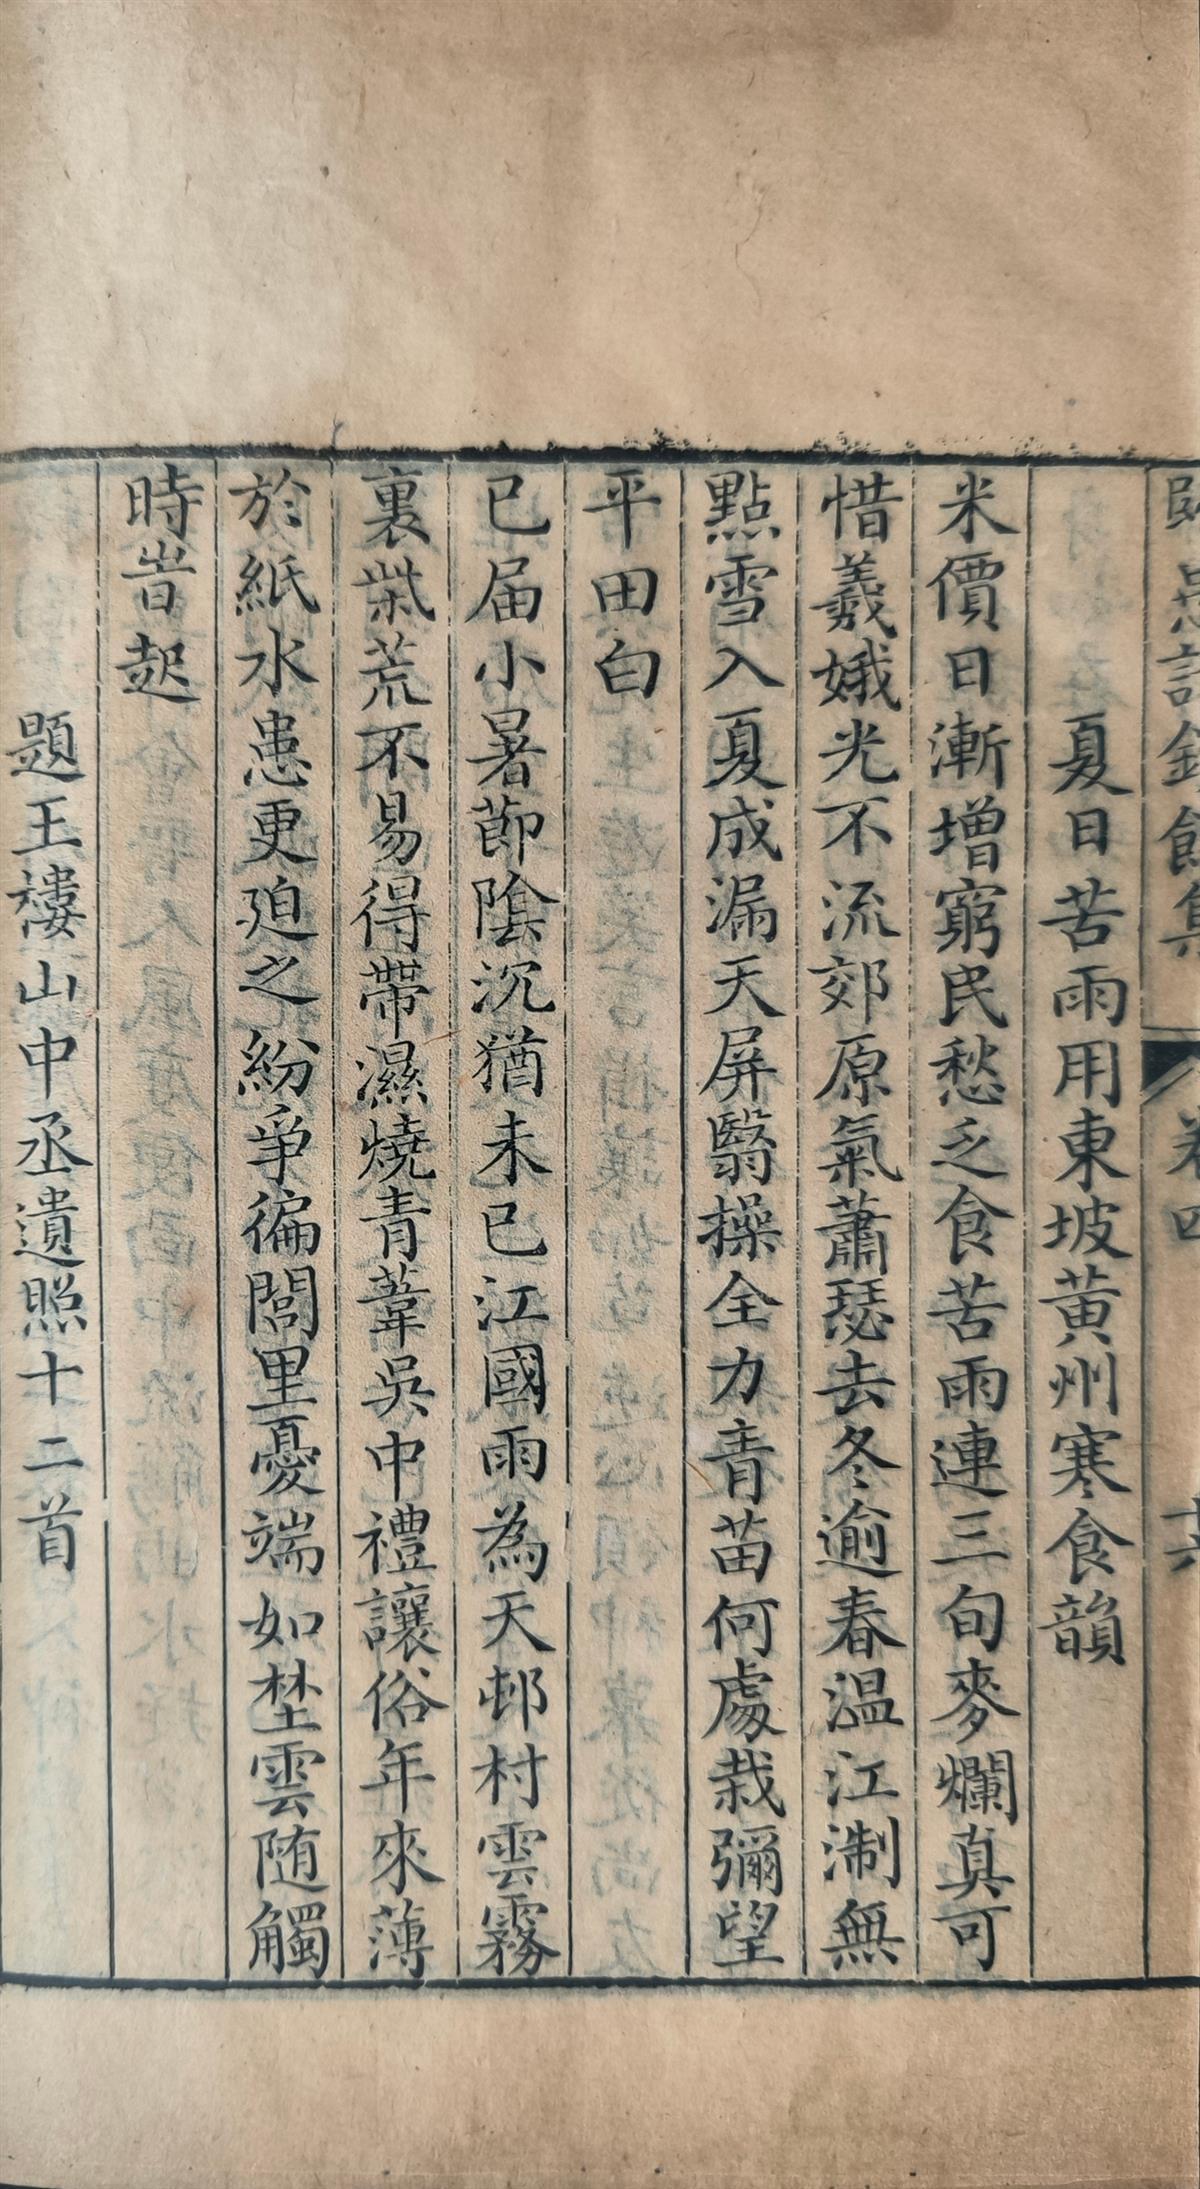 卷四 十六
夏日苦雨用東坡黃州寒食韻
米價日漸增窮民愁乏食苦雨連三旬麥爛真可
惜羲娥光不流郊原氣蕭瑟去冬逾春溫江淛無
點雪入夏成漏天屏翳操全力青苗何處栽彌望
平田白
已届小暑節陰沉猶未已江國雨為天邨村雲霧
裏柴荒不易得帶濕燒青葦吳中禮讓俗年來薄
於紙水患更廹之紛爭徧閭里憂端如埜雲随觸
時旹起
題王樓山中丞遺照十二首